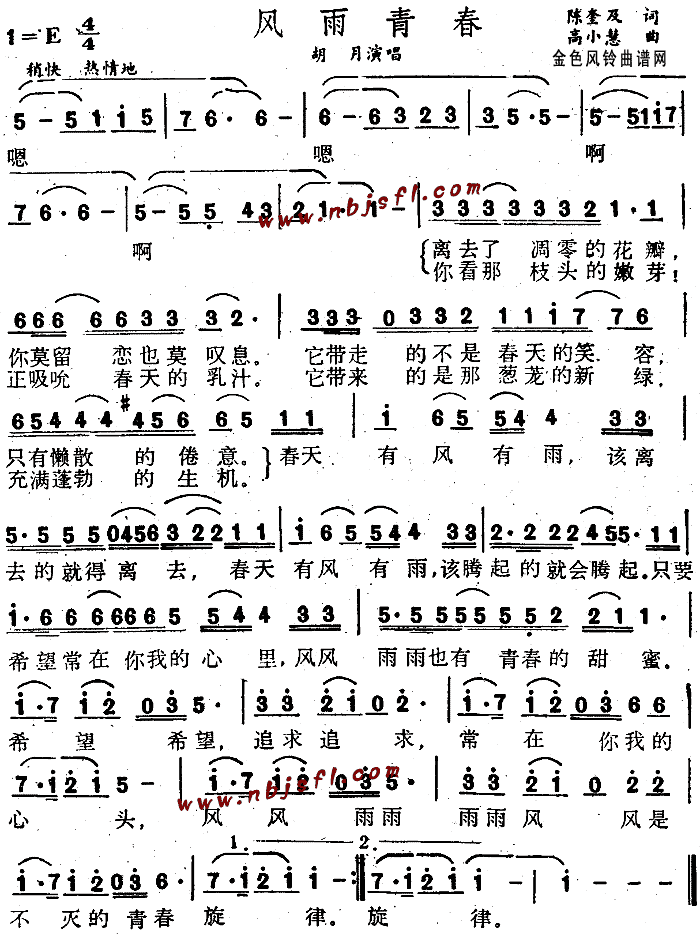 1=E 4/4
风雨青春
陈奎及 词
高小慧 曲
胡 月演唱
金色风铃曲谱网
稍快 热情地
5-5 1 1 i 5 | 7 6· 6- | 6-6 3 2 3 | 3 5·5- | 5-5 1 1 i 7
嗯 嗯 啊
7 6·6- | 5-5 5 4 3 | 2 1·1- | 3 3 3 3 3 3 3 3 2 1·1
www.nbjsfl.com
啊 离去了 凋零的花瓣，
你看那 枝头的嫩芽！
6 6 6 6 6 3 3 3 2· | 3 3 3 0 3 3 2 1 1 i 7 7 6
你莫留 恋也莫叹息。 它带走 的不是春天的笑容，
正吸吮 春天的乳汁。 它带来 的是那葱茏的新绿，
6 5 4 4 4 #4 5 6 6 5 1 1 | i 6 5 5 4 3 3
只有懒散 的倦意。 春天 有风有雨，该离
充满蓬勃 的生机。
5·5 5 5 0 4 5 6 3 2 2 1 1 | i 6 5 5 4 4 3 3 | 2·2 2 2 4 5 5·1 1
去的就得离去，春天有风有雨，该腾起的就会腾起。只要
i·6 6 6 6 6 6 5 5 4 4 3 3 | 5·5 5 5 5 5 5 5 2 2 1 1·
希望常在你我的心里，风风 雨雨也有青春的甜蜜。
i·7 i 2 0 3 5· | 3 3 2 i 0 2 | i·7 i 2 0 3 6 6
希望 希望，追求追求，常在你我的
7·i 2 i 5- | i·7 i 2 0 3 5· | 3 3 2 i 0 2 2
www.nbjsfl.com
心头，风风雨雨 雨雨风 风是
1. 2.
i·7 i 2 0 3 6· | 7·i 2 i i- :‖ 7·i 2 i i- | i - - - ‖
不灭的青春旋律。旋律。